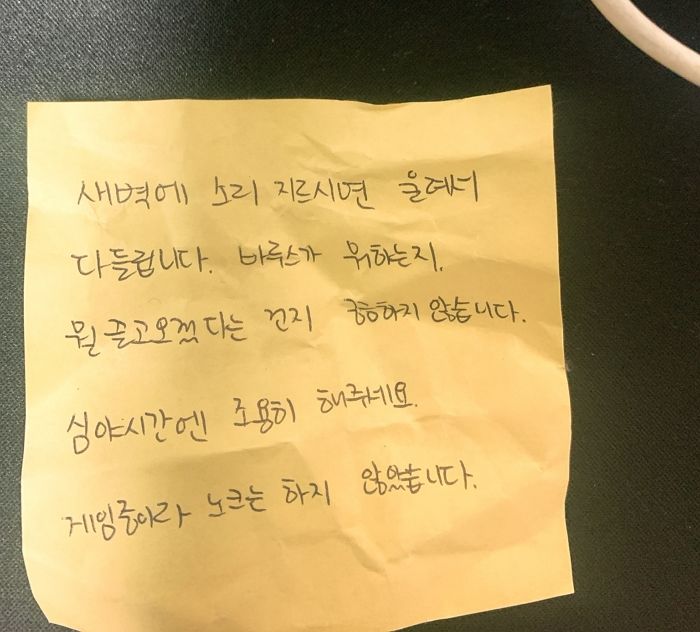 새벽에 소리 지르시면 울려서
다들립니다. 바루스가 뭐하는지,
뭘 들고오겠다는 건지 궁금하지 않습니다.
심야시간엔 조용히 해주세요.
게임중이라 노크는 하지 않았습니다.